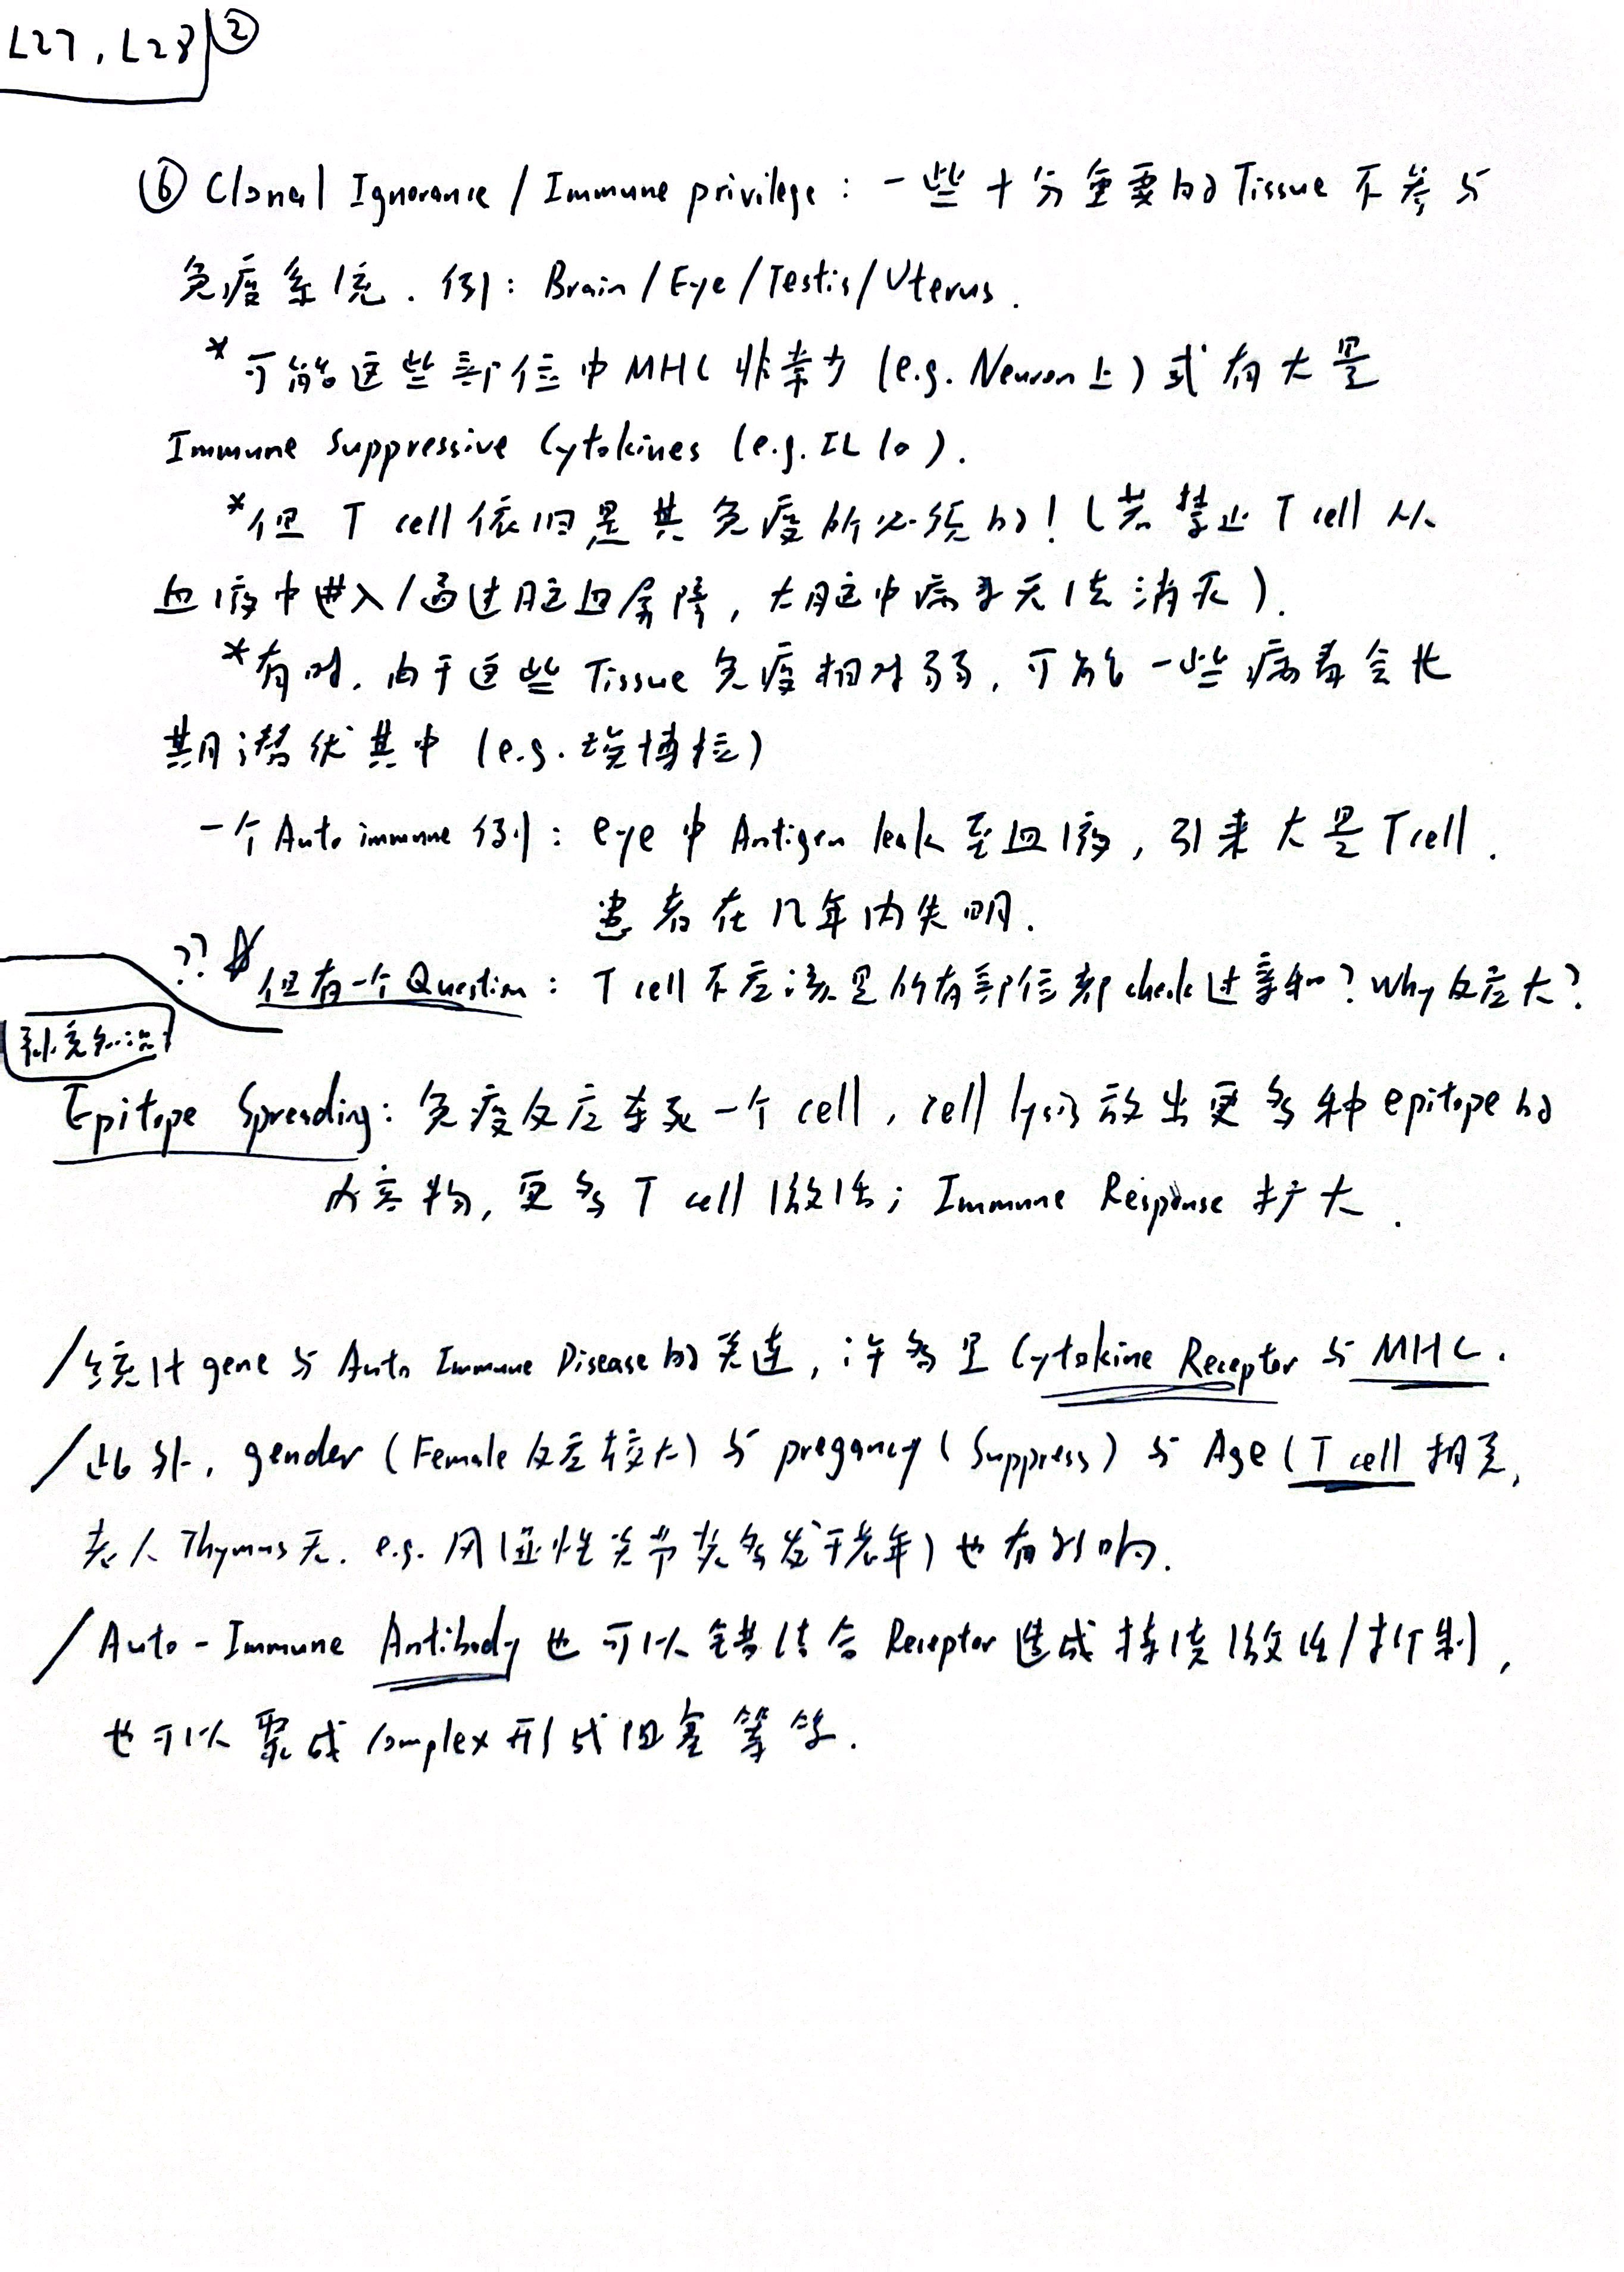 L27, L28 ②
⑥ Clonal Ignorance / Immune privilege : 一些十分重要的 Tissue 不参与
免疫系统. 例: Brain / Eye / Testis / Uterus.
* 可能这些部位中 MHC 非常少 (e.g. Neuron 上) 或有大量
Immune Suppressive Cytokines (e.g. IL 10).
* 但 T cell 依旧是其免疫所必须的! (若禁止 T cell 从
血液中进入/通过脑血屏障, 大脑中病毒无法消灭).
* 有时, 由于这些 Tissue 免疫相对弱, 可能一些病毒会长
期潜伏其中 (e.g. 埃博拉)
一个 Auto immune 例: eye 中 Antigen leak 至血液, 引来大量 T cell.
患者在几年内失明.
?? * 但有一个 Question : T cell 不应该是所有部位都 check 过亲和? Why 反应大?
补充知识
Epitope Spreading: 免疫反应杀死一个 cell, cell lysis 放出更多种 epitope 的
内容物, 更多 T cell 激活; Immune Response 扩大.
/ 统计 gene 与 Auto Immune Disease 的关连, 许多是 Cytokine Receptor 与 MHC.
/ 此外, gender (Female 反应较大) 与 pregancy (Suppress) 与 Age (T cell 相关,
老人 Thymus 无. e.g. 风湿性关节炎多发于老年) 也有影响.
/ Auto-Immune Antibody 也可以错结合 Receptor 造成持续激活/抑制,
也可以聚成 complex 形成阻塞等等.